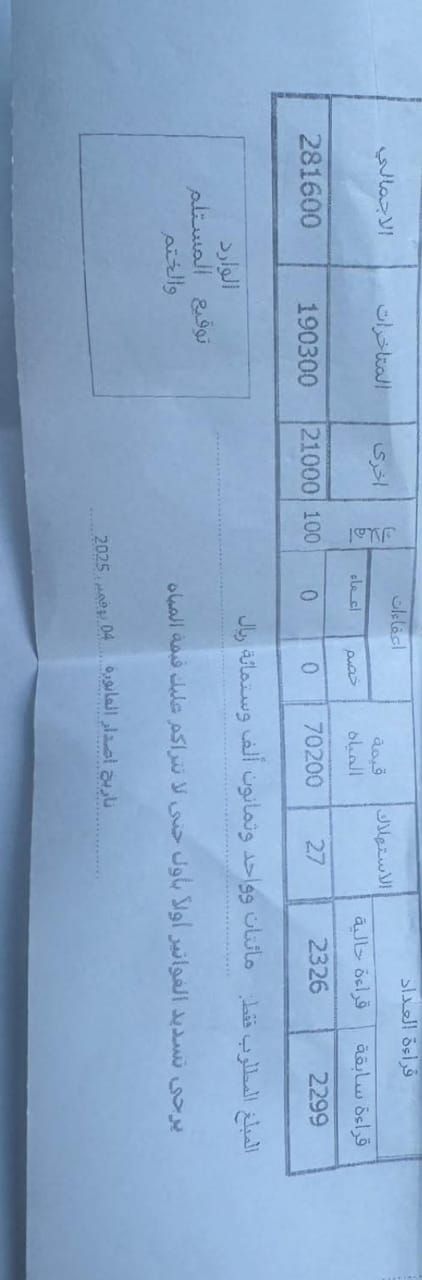 قراءة العداد
قراءة سابقة قراءة حالية الاستهلاك قيمة المياه اعفاءات اخرى المتاخرات الاجمالي
خصم اعفاء
2299 2326 27 70200 0 0 100 21000 190300 281600
المبلغ المطلوب فقط: مائتان وواحد وثمانون ألف وستمائة ريال
يرجى تسديد الفواتير أولاً بأول حتى لا تتراكم عليك قيمة المياه
تاريخ اصدار الفاتورة 04 نوفمبر، 2025
الوارد
توقيع المستلم
والختم